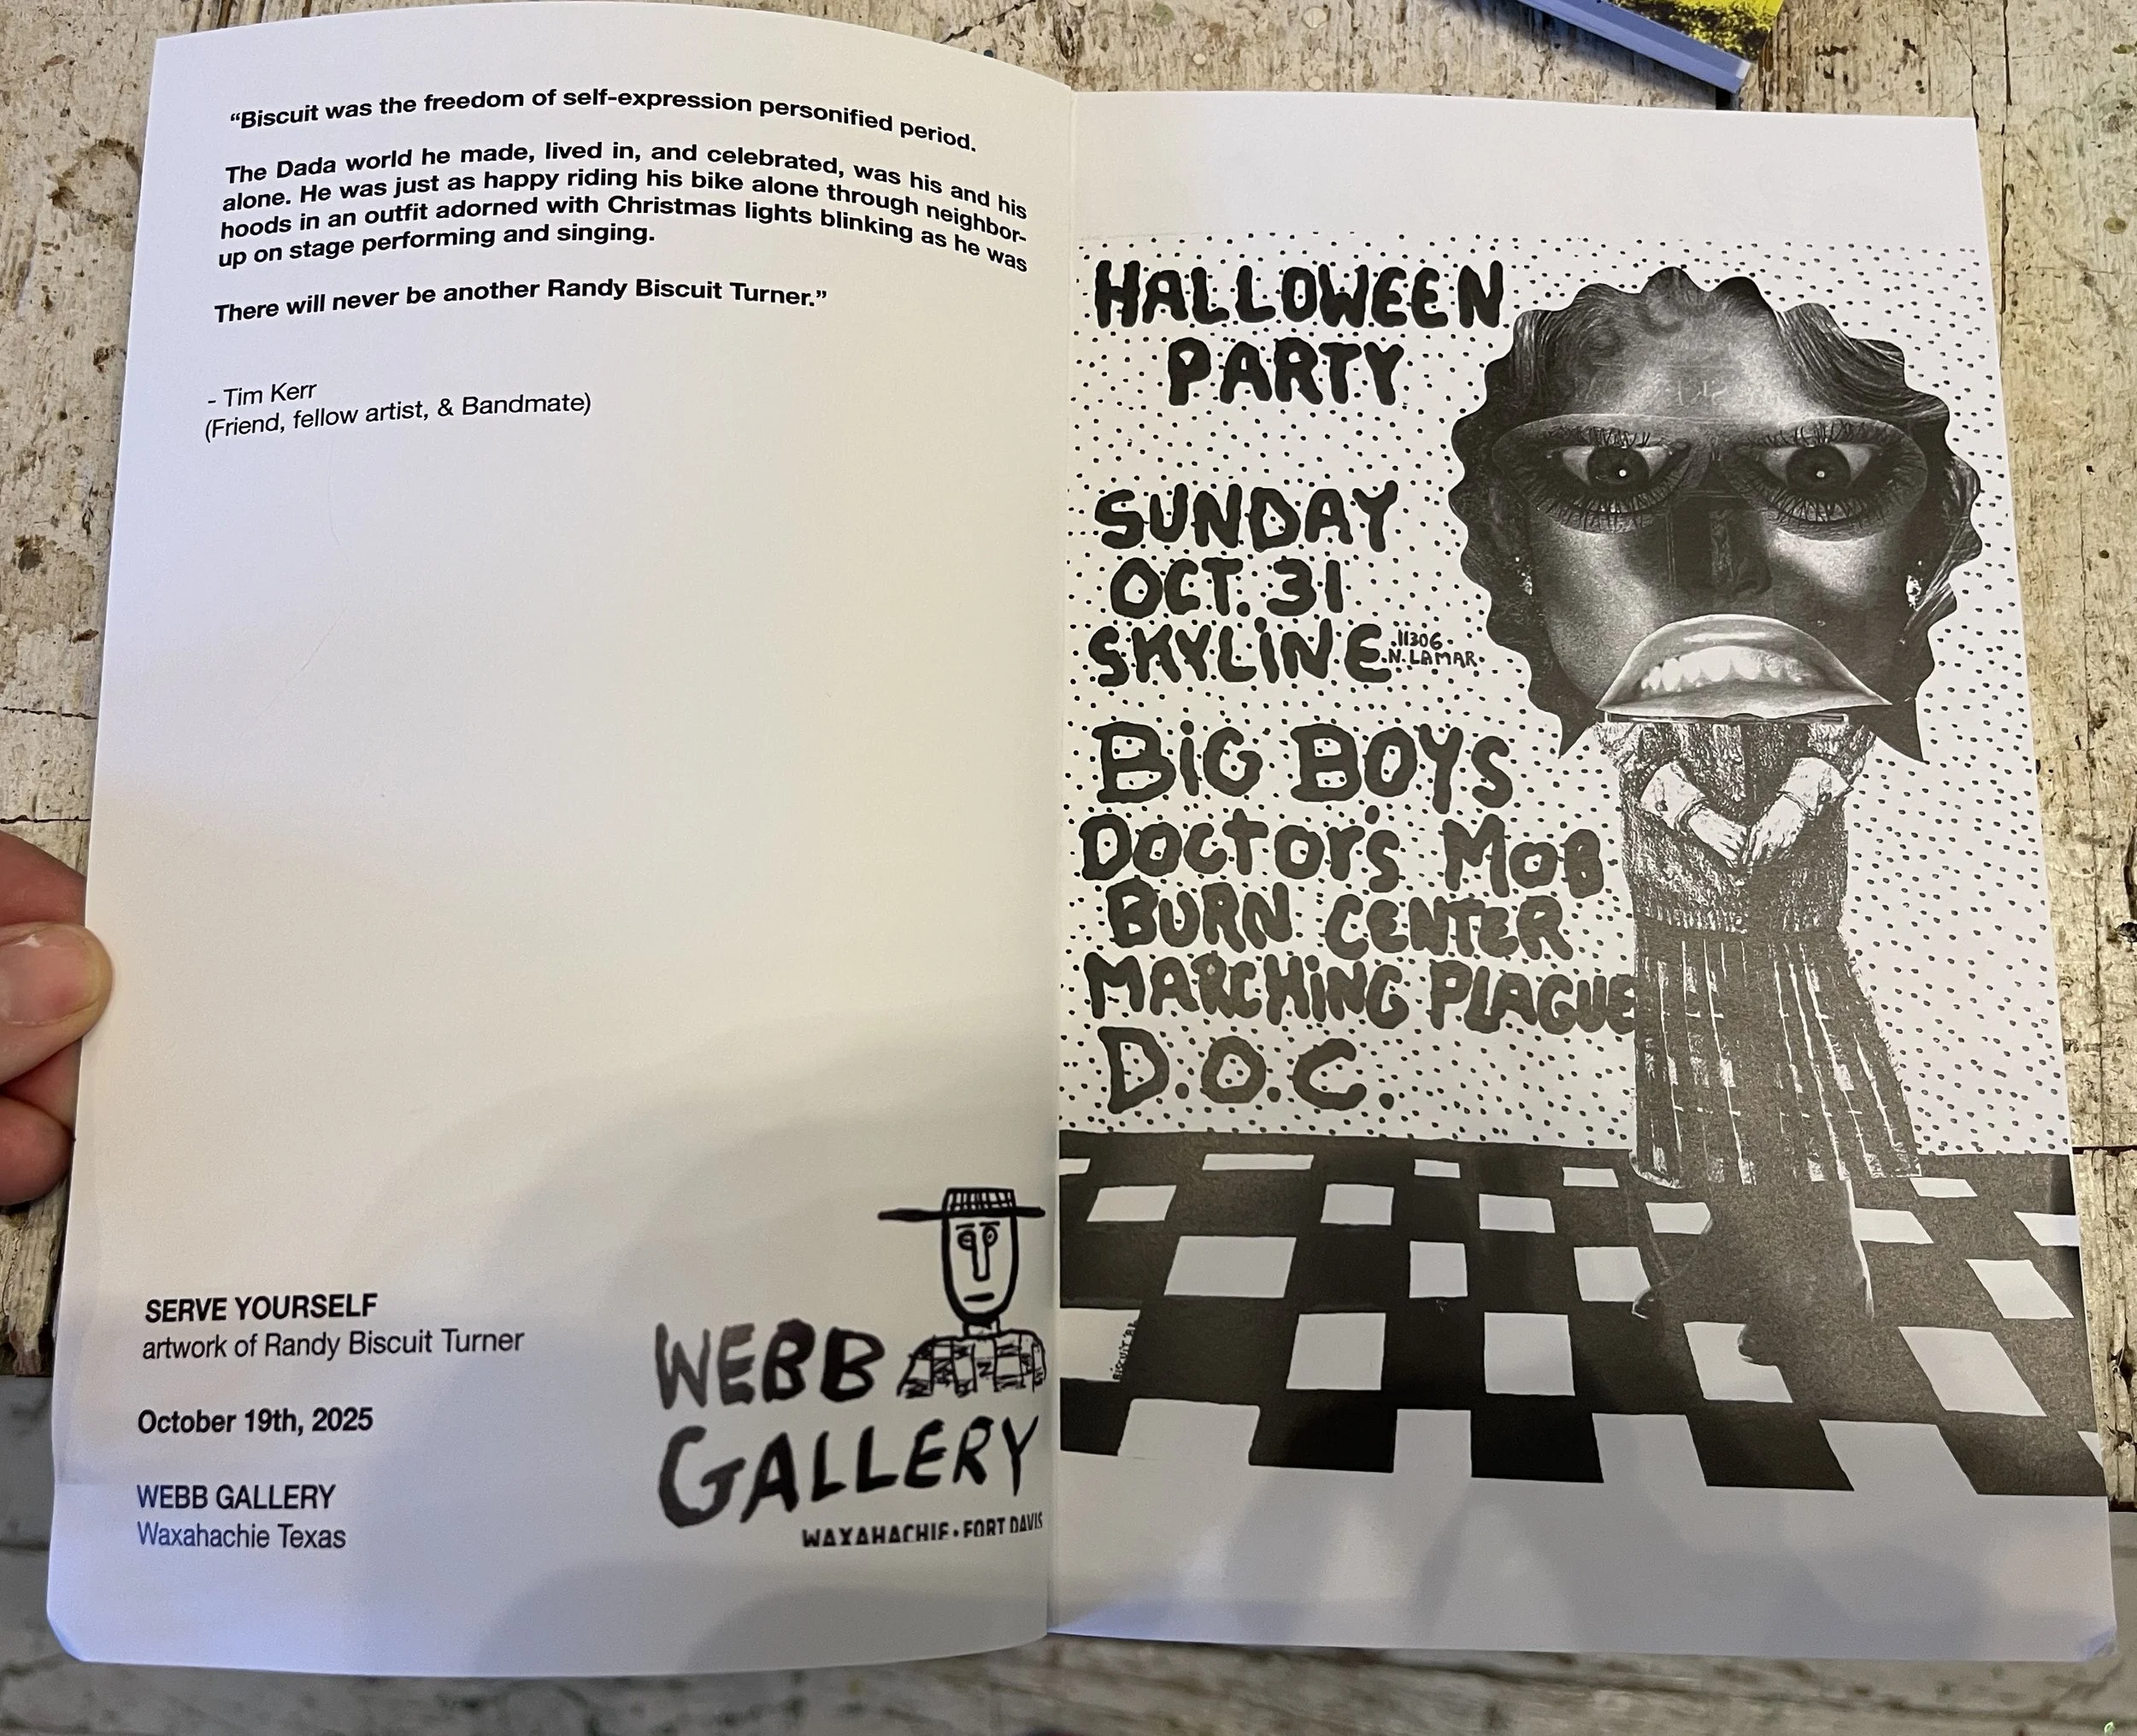 “Biscuit was the freedom of self-expression personified period.
The Dada world he made, lived in, and celebrated, was his and his
alone. He was just as happy riding his bike alone through neighbor-
hoods in an outfit adorned with Christmas lights blinking as he was
up on stage performing and singing.
There will never be another Randy Biscuit Turner.”
- Tim Kerr
(Friend, fellow artist, & Bandmate)
SERVE YOURSELF
artwork of Randy Biscuit Turner
October 19th, 2025
WEBB GALLERY
Waxahachie Texas
WEBB
GALLERY
WAXAHACHIE • FORT DAVIS
HALLOWEEN
PARTY
SUNDAY
OCT. 31
SKYLINE
11306
N. LAMAR
BIG BOYS
DOCTOR'S MOB
BURN CENTER
MARCHING PLAGUE
D.O.C.
BISCUIT '82